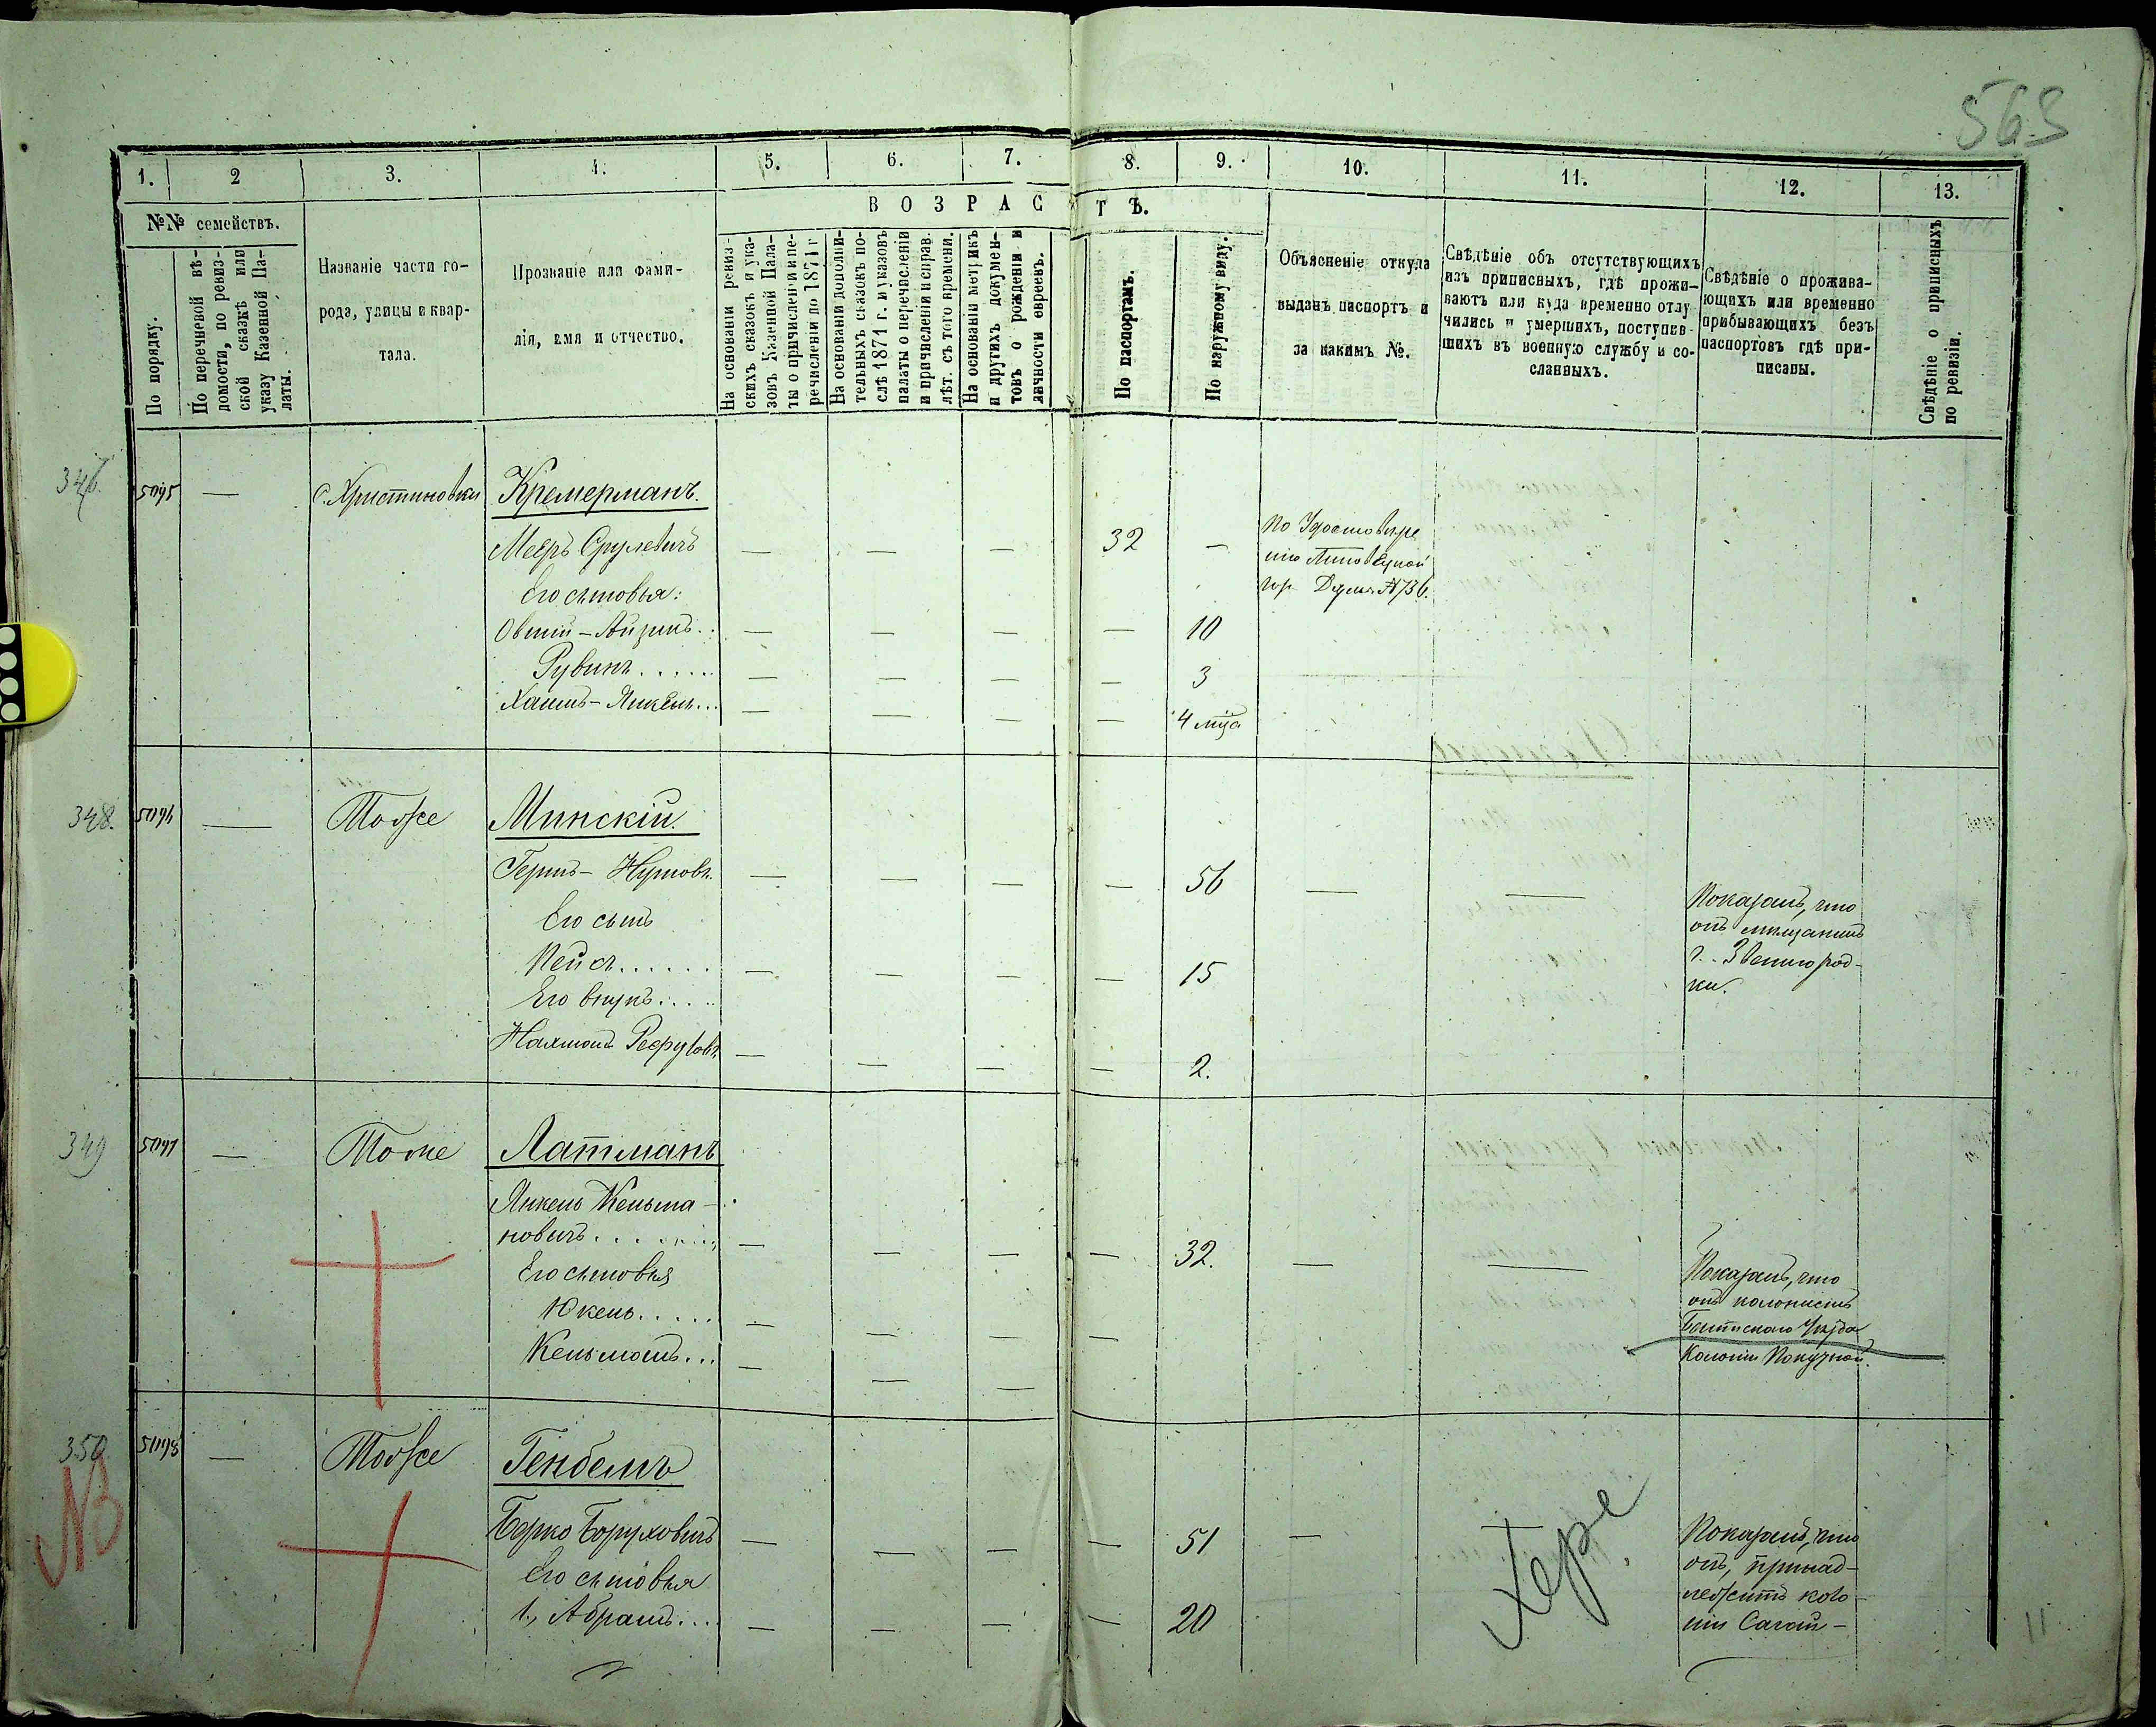 563
1. 2 3. 4. 5. 6. 7. 8. 9. 10. 11. 12. 13.
№№ семействъ.
В О З Р А С Т Ъ.
По порядку.
По перечневой вѣ-
домости, по ревиз-
ской сказкѣ или
указу Казенной Па-
латы.
Названіе части го-
рода, улицы и квар-
тала.
Прозваніе или фами-
лія, имя и отчество.
На основаніи ревиз-
скихъ сказокъ и ука-
зовъ Казенной Пала-
ты о причисленіи и пе-
речисленіи до 1871 г
На основаніи дополни-
тельныхъ сказокъ по-
слѣ 1871 г. и указовъ
палаты о перечисленіи
и причисленіи и справ.
лѣт. съ того времени.
На основаніи метрикъ
и другихъ докумен-
товъ о рожденіи и
личности евреевъ.
По паспортамъ.
По наружному виду.
Объясненіе откуда
выданъ паспортъ и
за какимъ №.
Свѣдѣніе объ отсутствующихъ
изъ приписныхъ, гдѣ прожи-
ваютъ или куда временно отлу
чились и умершихъ, поступив-
шихъ въ военную службу и со-
сланныхъ.
Свѣдѣніе о прожива-
ющихъ или временно
прибывающихъ безъ
паспортовъ гдѣ при-
писаны.
Свѣдѣніе о приписныхъ
по ревизіи.
с. Христиновка Кремерманъ.
Мееръ Срулевичъ — — — 32 —
По Удостовѣре
нію Липовецкой
гор. Думы №736.
Его сыновья:
Овшій-Айзикъ.. — — — — 10
Рувинъ..... — — — — 3
Хаимъ-Янкель.. — — — — 4 мца
348. — Тоже Минскій.
Гершъ-Нутовъ. — — — — 56 — —
Показалъ, что
онъ мѣщанинъ
г. Звенигород-
ки.
Его сынъ
Пейсъ...... — — — 15
Его внукъ....
Нахманъ — — — — 2.
349 — Тоже Латманъ
Янкель Кельма-
новичъ....... — — — — 32. — —
Показалъ, что
онъ колонистъ
Балтскаго Уѣзда
Колоніи Покутной.
Его сыновья
Юкель..... — — — —
Кельманъ... — — —
350 — Тоже Гендель
NB
Берко Боруховичъ — — — — 51 —
Хере
Показалъ, что
онъ, принад-
лежитъ коло-
ніи Сагай-
Его сыновья
1., Абрамъ... — — — — 20
11